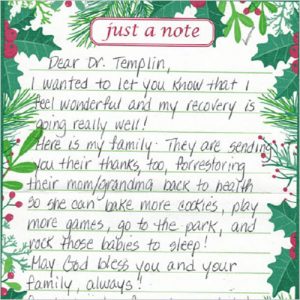 just a note
Dear Dr. Templin,
I wanted to let you know that I
feel wonderful and my recovery is
going really well!
Here is my family. They are sending
you their thanks, too, for restoring
their mom/grandma back to health
so she can bake more cookies, play
more games, go to the park, and
rock those babies to sleep!
May God bless you and your
family, always!